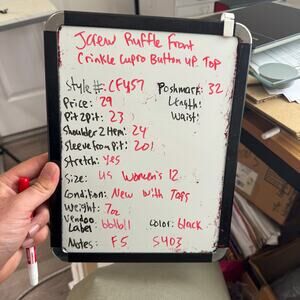 Jcrew Ruffle Front
Crinkle Cupro Button up Top
Style#: CF457 Poshmark: 32
Price: 29 Length:
Pit 2 Pit: 23 Waist:
Shoulder 2 Hem: 24
Sleeve from Pit: 20"
Stretch: Yes
Size: US Women's 12
Condition: New with Tags
Weight: 7oz
Vendoo
Label: bblb11 Color: black
Notes: F5 5403